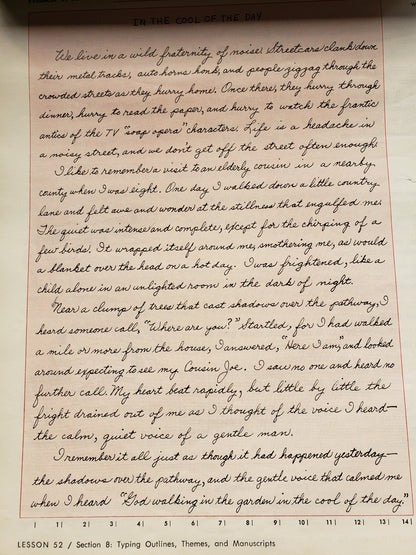 IN THE COOL OF THE DAY
We live in a wild fraternity of noise! Streetcars clank down
their metal tracks, auto horns honk, and people zigzag through the
crowded streets as they hurry home. Once there, they hurry through
dinner, hurry to read the paper, and hurry to watch the frantic
antics of the TV "soap opera" characters. Life is a headache in
a noisy street, and we don't get off the street often enough.
I like to remember a visit to an elderly cousin in a nearby
county when I was eight. One day I walked down a little country
lane and felt awe and wonder at the stillness that engulfed me.
The quiet was intense and complete, except for the chirping of a
few birds. It wrapped itself around me, smothering me, as would
a blanket over the head on a hot day. I was frightened, like a
child alone in an unlighted room in the dark of night.
Near a clump of trees that cast shadows over the pathway, I
heard someone call, "Where are you?" Startled, for I had walked
a mile or more from the house, I answered, "Here I am," and looked
around expecting to see my Cousin Joe. I saw no one and heard no
further call. My heart beat rapidly, but little by little the
fright drained out of me as I thought of the voice I heard—
the calm, quiet voice of a gentle man.
I remember it all just as though it had happened yesterday—
the shadows over the pathway, and the gentle voice that calmed me
when I heard "God walking in the garden in the cool of the day."
1 2 3 4 5 6 7 8 9 10 11 12 13 14
LESSON 52 / Section 8: Typing Outlines, Themes, and Manuscripts